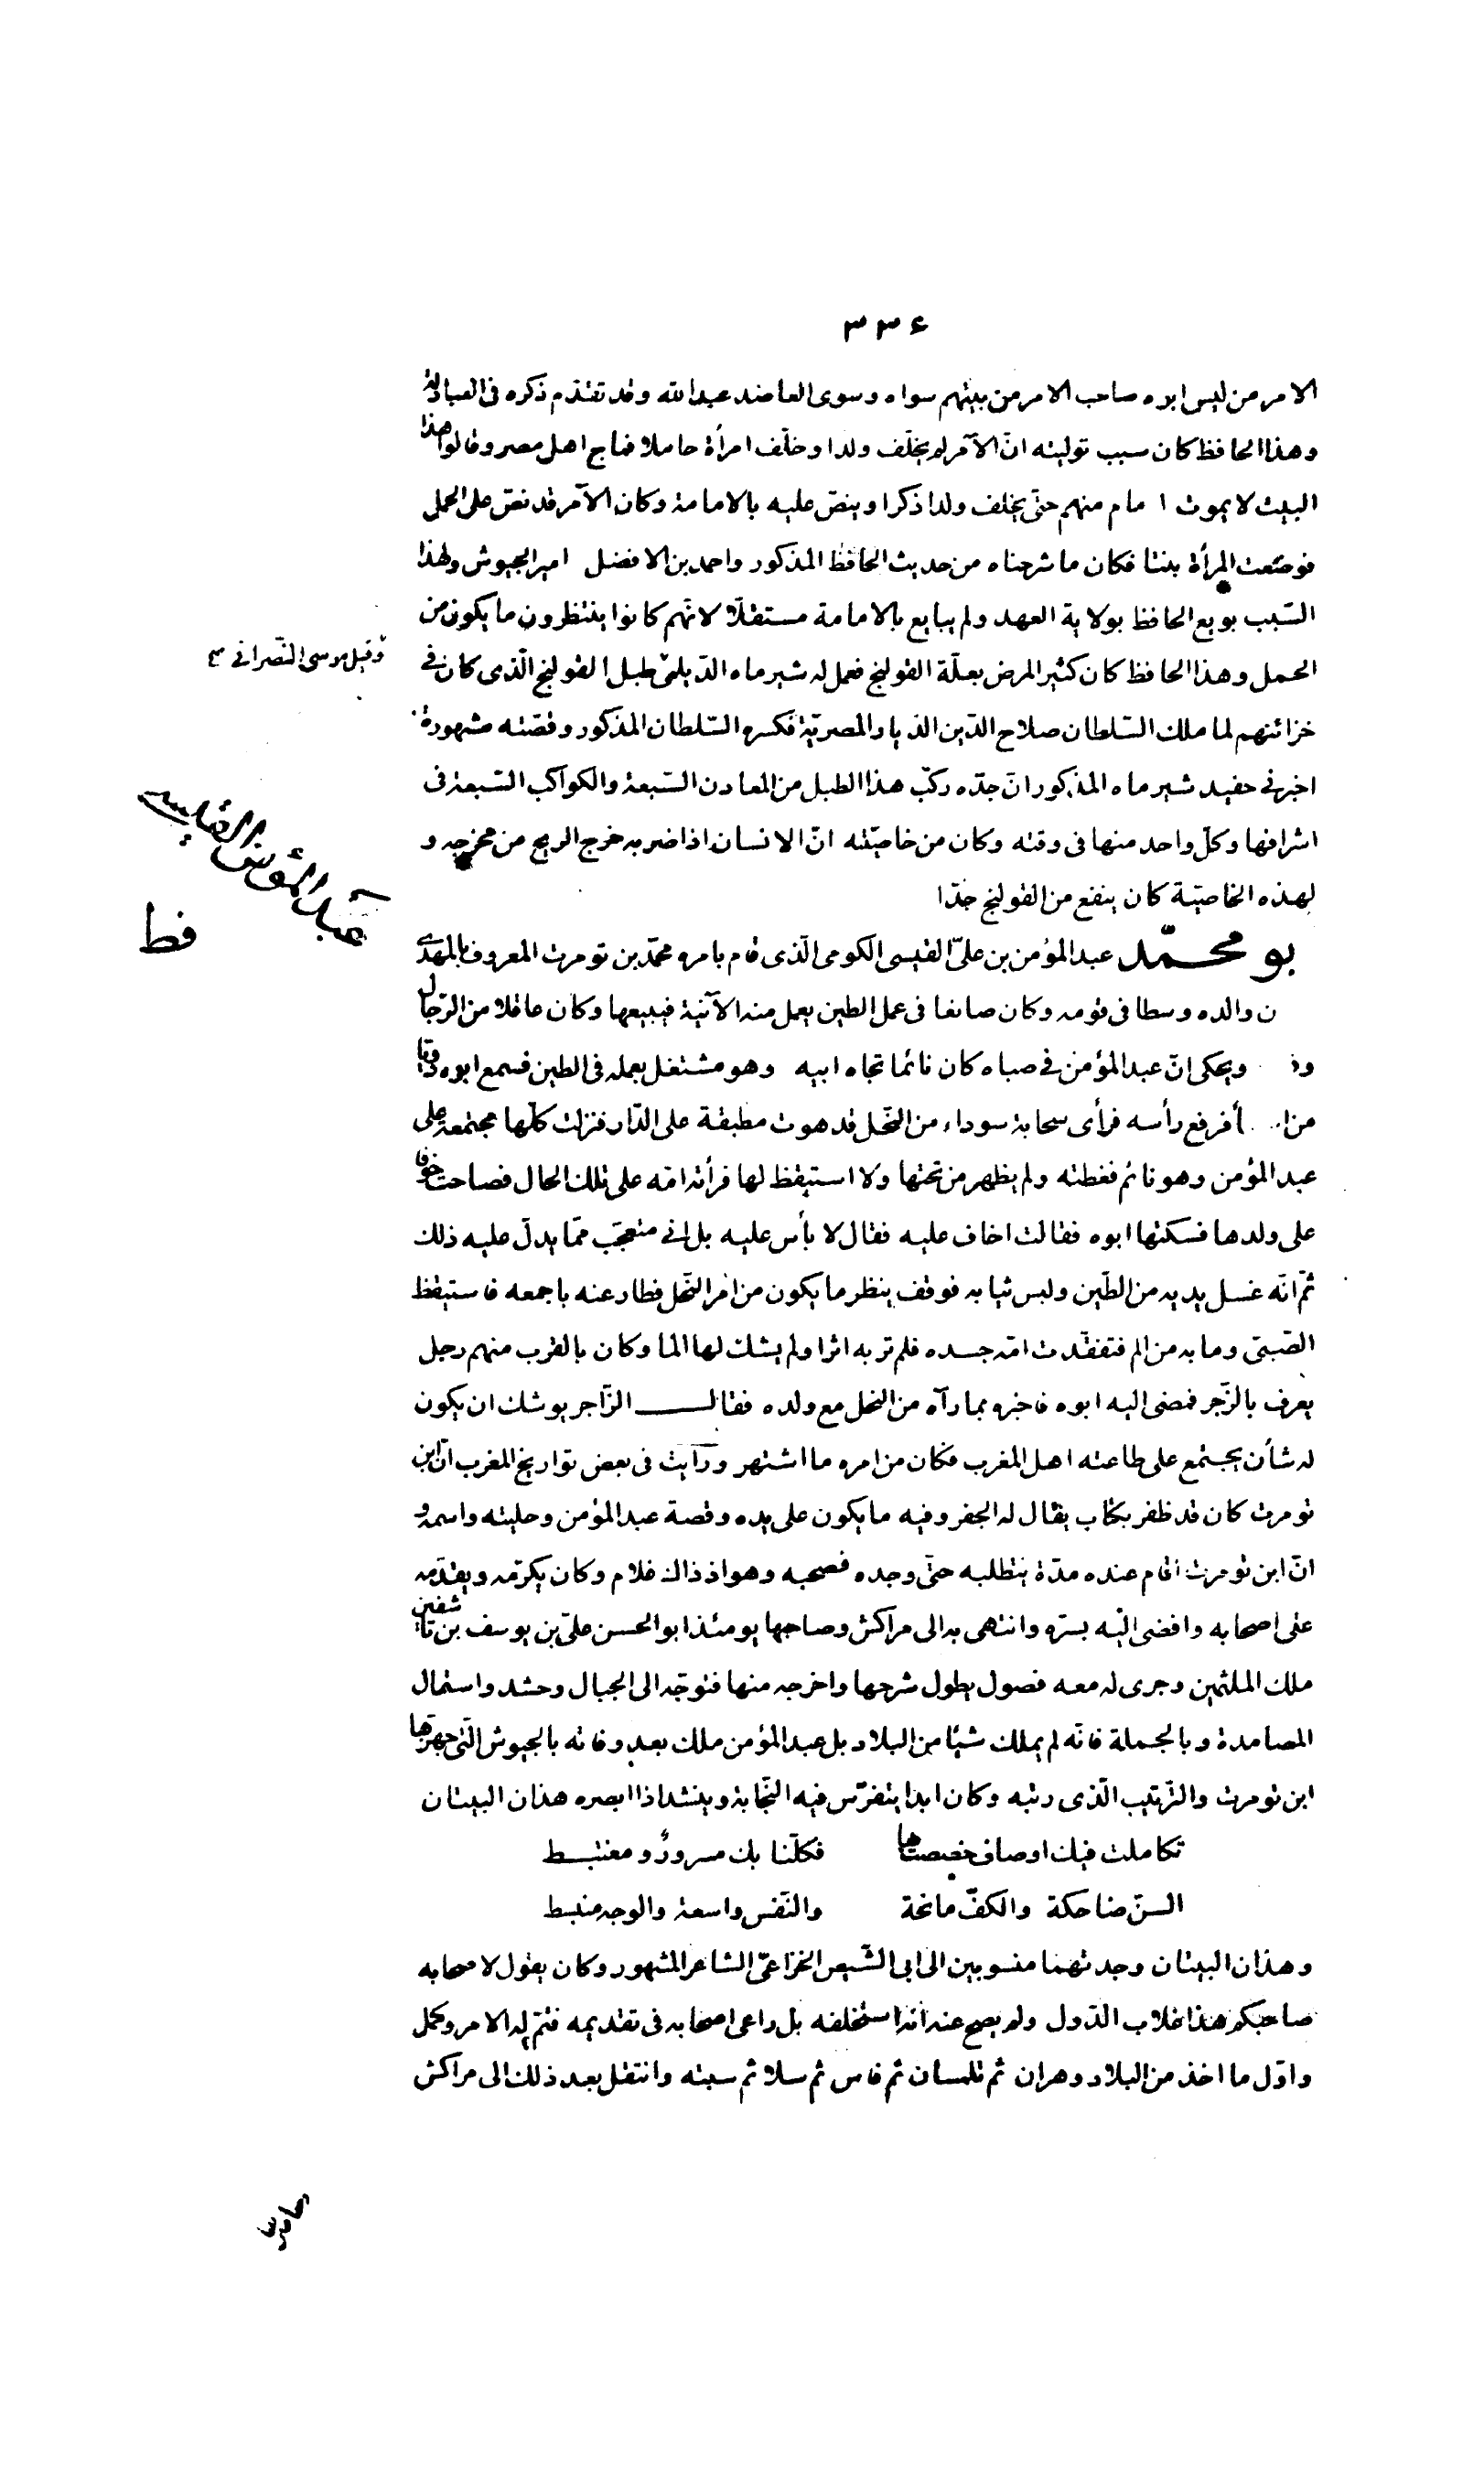 ٣٣٤
الامر من ليس ابوه صاحب الامر من بينهم سواه وسوى العاضد عبد الله وقد تقدّم ذكره فى العبادلة
وهذا الحافظ كان سبب توليته انّ الآمر لم يخلّف ولدا وخلّف امرأة حاملا فماج اهل مصر وقالوا هذا
البيت لا يموت امام منهم حتّى يخلف ولدا ذكرا وينصّ عليه بالامامة وكان الآمر قد نصّ على الحمل
فوضعت المرأة بنتا فكان ما شرحناه من حديث الحافظ المذكور واحمد بن الافضل امير الجيوش ولهذا
السّبب بويع الحافظ بولاية العهد ولم يبايع بالامامة مستقلّا لانّهم كانوا ينتظرون ما يكون من
الحمل وهذا الحافظ كان كثير المرض بعلّة القولنج فعمل له شيرماه الدّيلمىّ طبل القولنج الّذى كان فى
وقيل موسى النّصرانى
خزائنهم لما ملك السّلطان صلاح الدّين الديار المصريّة فكسره السّلطان المذكور وقصّته مشهورة
اخبرنى حفيد شيرماه المذكور انّ جدّه ركّب هذا الطبل من المعادن السّبعة والكواكب السّبعة فى
اشرافها وكلّ واحد منها فى وقته وكان من خاصّيّته انّ الانسان اذا ضربه خرج الريح من مخرجه و
لهذه الخاصيّة كان ينفع من القولنج جدّا
عبد المؤمن القيسى
بو محمّد عبد المؤمن بن علىّ القيسى الكومى الّذى قام بامره محمّد بن تومرت المعروف بالمهدى
ن والده وسطا فى قومه وكان صانعا فى عمل الطين يعمل منه الآنية فيبيعها وكان عاقلا من الرّجال
وق ويحكى انّ عبد المؤمن فى صباه كان نائما تجاه ابيه وهو مشتغل بعمله فى الطين فسمع ابوه دويّا
من ا أفرفع رأسه فرأى سحابة سوداء من النّحل قد هوت مطبقة على الدّار فنزلت كلّها مجتمعة على
عبد المؤمن وهو نائم فغطته ولم يظهر من تحتها ولا استيقظ لها فرأته امّه على تلك الحال فصاحت خوفا
على ولدها فسكتها ابوه فقالت اخاف عليه فقال لا بأس عليه بل انى متعجّب ممّا يدلّ عليه ذلك
ثمّ انّه غسل يديه من الطّين ولبس ثيابه فوقف ينظر ما يكون من امر النّحل فطار عنه باجمعه فاستيقظ
الصّبىّ وما به من الم فتفقّدت امّه جسده فلم تر به اثرا ولم يشك لها الما وكان بالقرب منهم رجل
يعرف بالزّجر فمضى اليه ابوه فاخبره بما رآه من النحل مع ولده فقال الزّاجر يوشك ان يكون
له شأن يجتمع على طاعته اهل المغرب فكان من امره ما اشتهر ورأيت فى بعض تواريخ المغرب انّ ابن
تومرت كان قد ظفر بكتاب يقال له الجفر وفيه ما يكون على يده وقصة عبد المؤمن وحليته واسمه و
انّ ابن تومرت اقام عنده مدّة يتطلبه حتّى وجده فصحبه وهو اذ ذاك غلام وكان يكرّمه ويقدّمه
على اصحابه وافضى اليه بسرّه وانتهى به الى مراكش وصاحبها يومئذ ابو الحسن علىّ بن يوسف بن تاشفين
ملك الملثمين وجرى له معه فصول يطول شرحها واخرجه منها فتوجّه الى الجبال وحشد واستمال
المصامدة وبالجملة فانّه لم يملك شيئا من البلاد بل عبد المؤمن ملك بعد وفاته بالجيوش الّتى جهّزها
ابن تومرت والتّرتيب الّذى رتبه وكان ابدا يتفرّس فيه النّجابة وينشد اذا ابصره هذان البيتان
تكاملت فيك اوصاف خصصت بها فكلّنا بك مسرورٌ ومغتبط
السنّ ضاحكة والكفّ مانحة والنّفس واسعة والوجه منبسط
وهذان البيتان وجدتهما منسوبين الى ابى الشّيص الخزاعىّ الشاعر المشهور وكان يقول لاصحابه
صاحبكم هذا غلاب الدّول ولم يصح عنه انّه استخلفه بل راعى اصحابه فى تقديمه فتمّ له الامر وكمل
واوّل ما اخذ من البلاد وهران ثم تلمسان ثم فاس ثم سلا ثم سبته وانتقل بعد ذلك الى مراكش